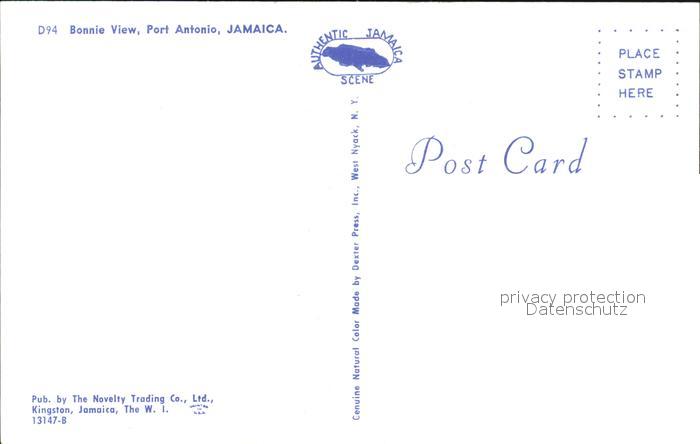 D94 Bonnie View, Port Antonio, JAMAICA.
AUTHENTIC JAMAICA
SCENE
PLACE
STAMP
HERE
Post Card
Genuine Natural Color Made by Dexter Press, Inc., West Nyack, N. Y.
privacy protection
Datenschutz
Pub. by The Novelty Trading Co., Ltd.,
Kingston, Jamaica, The W. I.
13147-B